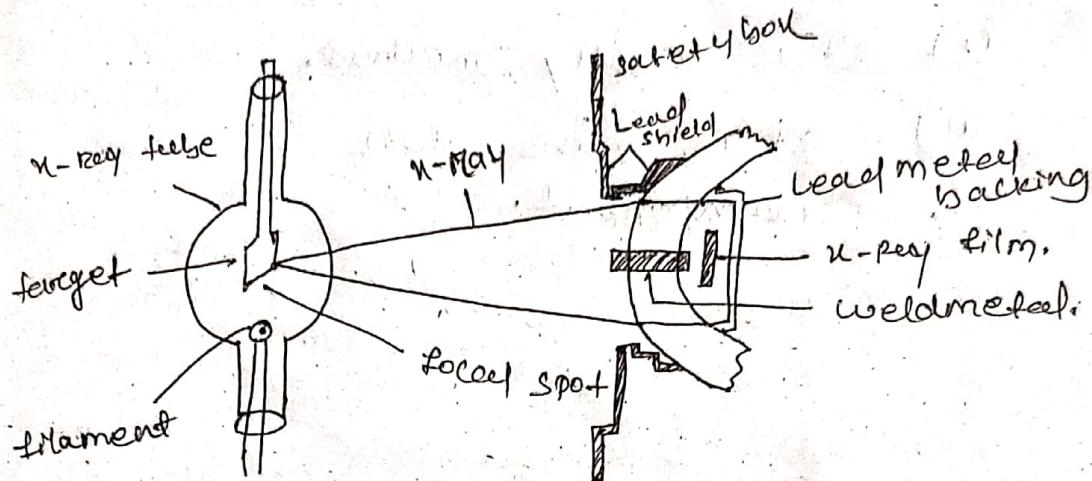 safety box
Lead
shield
x-Ray tube
x-Ray
Lead metal
backing
target
x-Ray film.
weldmetal.
focal spot
filament